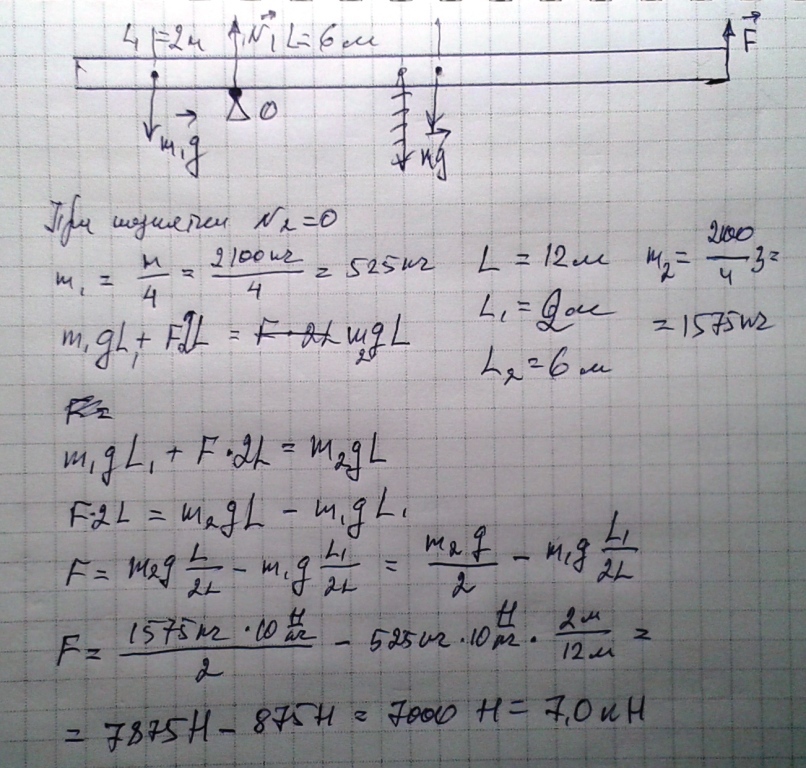 L₁=2м N₁ L=6м F
O
m₁g mg
При поднятии N₂=0
m₁ = м/4 = 2100кг/4 = 525кг
L = 12м m₂ = 2100/4 3 =
= 1575кг
L₁ = 2м
m₁gL₁ + F2L = m₂gL
L₂ = 6м
m₁gL₁ + F·2L = m₂gL
F·2L = m₂gL - m₁gL₁
F = m₂g L/2L - m₁g L₁/2L = m₂g/2 - m₁g L₁/2L
F = 1575кг·10 Н/кг / 2 - 525кг·10 Н/кг · 2м/12м =
= 7875Н - 875Н = 7000 Н = 7,0кН